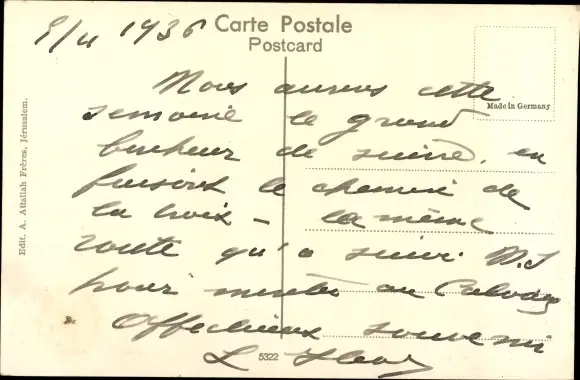 9/4 1936
Carte Postale
Postcard
Made in Germany
Edit. A. Attallah Frères, Jérusalem.
Nous aurons cette
semaine le grand
bonheur de suivre, en
faisant le chemin de
la croix - la même
route qu'a suivi N.S
pour monter au Calvaire
Affectueux souvenir
L
5322